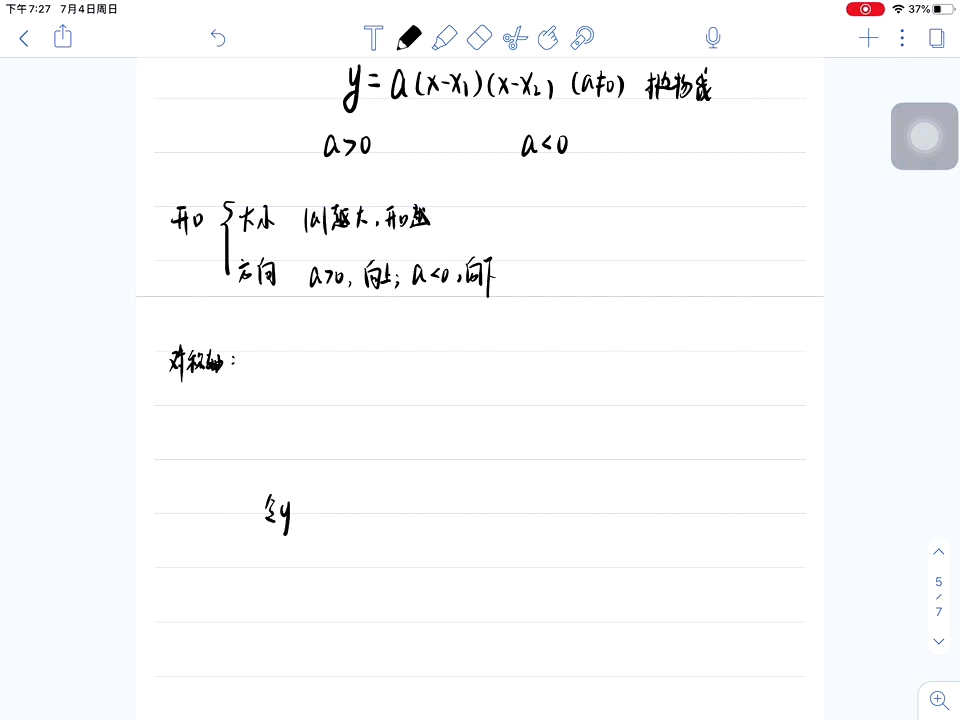 下午7:27 7月4日周日
37%
T
y=a(x-x₁)(x-x₂) (a≠0) 抛物线
a>0 a<0
开口 { 大小 |a|越大,开口越
方向 a>0, 向上; a<0, 向下
对称轴:
令y
5
/
7